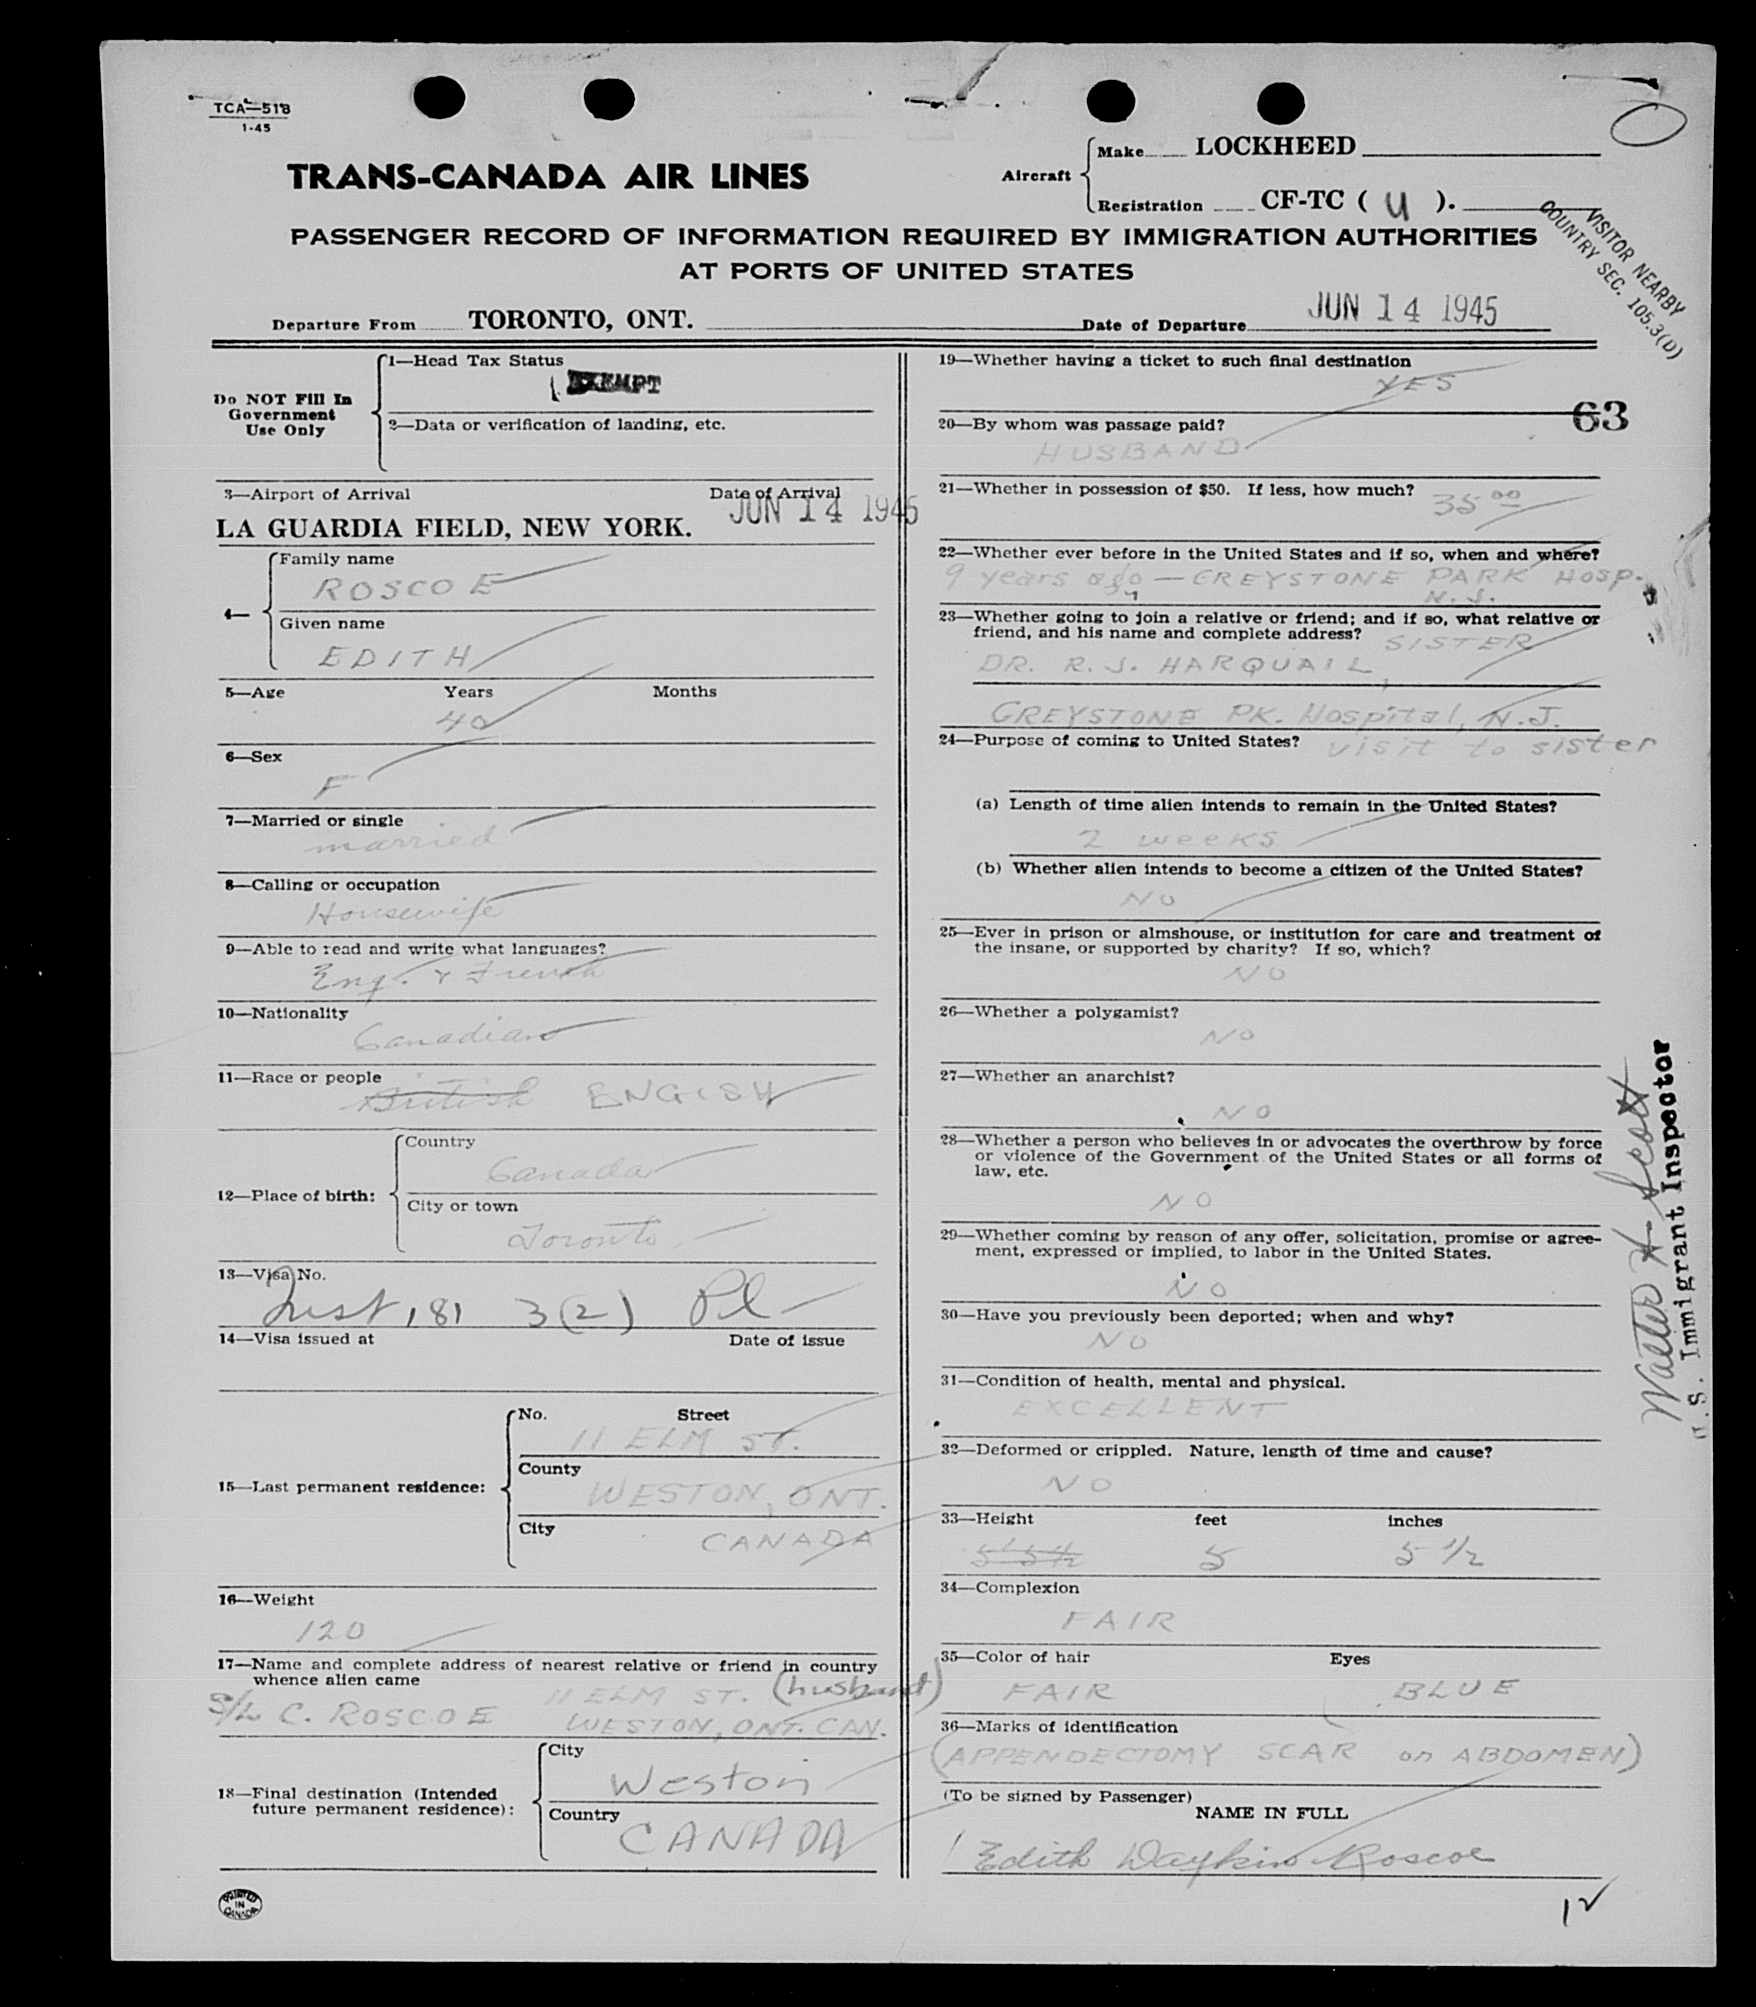 TCA—518
1-45
TRANS-CANADA AIR LINES
Aircraft
Make LOCKHEED
Registration CF-TC ( U ).
PASSENGER RECORD OF INFORMATION REQUIRED BY IMMIGRATION AUTHORITIES
AT PORTS OF UNITED STATES
VISITOR NEARBY
COUNTRY SEC. 105.3(D)
Departure From TORONTO, ONT.
Date of Departure JUN 14 1945
Do NOT Fill In
Government
Use Only
1—Head Tax Status
EXEMPT
2—Data or verification of landing, etc.
3—Airport of Arrival Date of Arrival
LA GUARDIA FIELD, NEW YORK. JUN 14 1945
4—
Family name
ROSCOE
Given name
EDITH
5—Age Years Months
40
6—Sex
F
7—Married or single
married
8—Calling or occupation
Housewife
9—Able to read and write what languages?
Eng. & French
10—Nationality
Canadian
11—Race or people
British ENGISH
12—Place of birth:
Country
Canada
City or town
Toronto
13—Visa No.
181 3(2) Pl
14—Visa issued at Date of issue
15—Last permanent residence:
No. Street
11 ELM ST.
County
WESTON, ONT.
City
CANADA
16—Weight
120
17—Name and complete address of nearest relative or friend in country
whence alien came
11 ELM ST. (husband)
S/L C. ROSCOE WESTON, ONT. CAN.
18—Final destination (Intended
future permanent residence):
City
Weston
Country
CANADA
PRINTED
IN
CANADA
19—Whether having a ticket to such final destination
YES
63
20—By whom was passage paid?
HUSBAND
21—Whether in possession of $50. If less, how much? 35 00
22—Whether ever before in the United States and if so, when and where?
9 years ago — GREYSTONE PARK HOSP.
N.J.
23—Whether going to join a relative or friend; and if so, what relative or
friend, and his name and complete address? SISTER
DR. R. J. HARQUAIL,
GREYSTONE PK. Hospital, N.J.
24—Purpose of coming to United States? visit to sister
(a) Length of time alien intends to remain in the United States?
2 weeks
(b) Whether alien intends to become a citizen of the United States?
NO
25—Ever in prison or almshouse, or institution for care and treatment of
the insane, or supported by charity? If so, which?
NO
26—Whether a polygamist?
NO
27—Whether an anarchist?
NO
28—Whether a person who believes in or advocates the overthrow by force
or violence of the Government of the United States or all forms of
law, etc.
NO
29—Whether coming by reason of any offer, solicitation, promise or agree-
ment, expressed or implied, to labor in the United States.
NO
30—Have you previously been deported; when and why?
NO
31—Condition of health, mental and physical.
EXCELLENT
32—Deformed or crippled. Nature, length of time and cause?
NO
33—Height feet inches
5' 5½ 5 5 1/2
34—Complexion
FAIR
35—Color of hair Eyes
FAIR BLUE
36—Marks of identification
(APPENDECTOMY SCAR on ABDOMEN)
(To be signed by Passenger)
NAME IN FULL
Edith Daykin Roscoe
12
Walter H. Scott
U.S. Immigrant Inspector